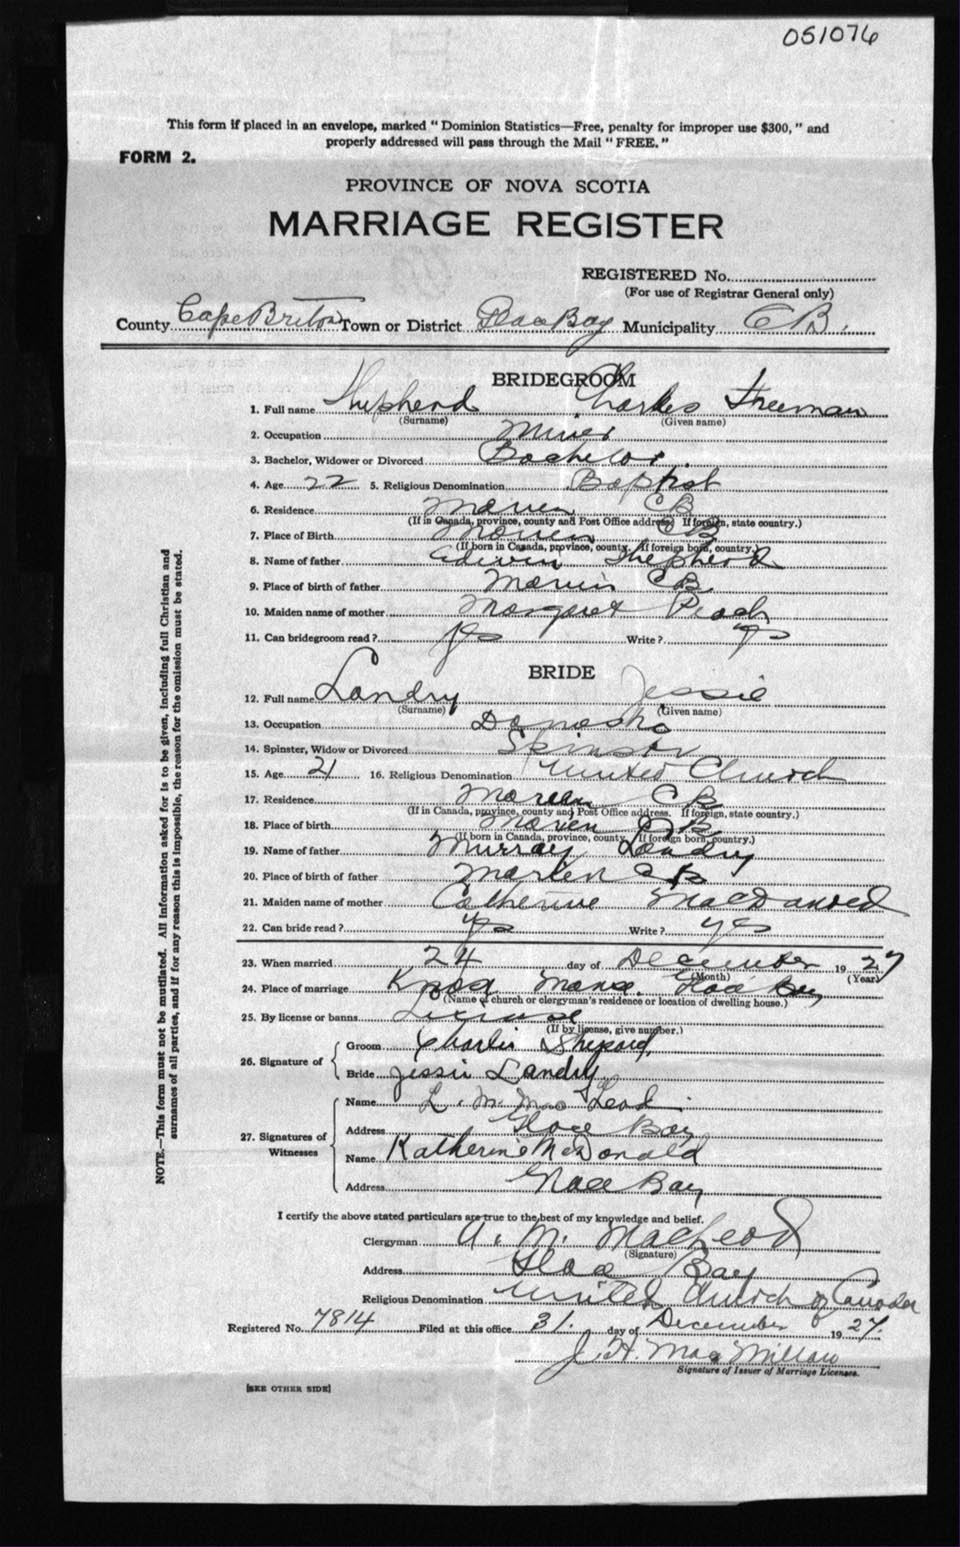 051076
This form if placed in an envelope, marked " Dominion Statistics—Free, penalty for improper use $300, " and
properly addressed will pass through the Mail " FREE. "
FORM 2.
PROVINCE OF NOVA SCOTIA
MARRIAGE REGISTER
REGISTERED No.
(For use of Registrar General only)
County Cape Breton Town or District Glace Bay Municipality C B.
BRIDEGROOM
1. Full name Shepherd Charles Freeman
(Surname) (Given name)
2. Occupation Miner
3. Bachelor, Widower or Divorced Bachelor.
4. Age 22 5. Religious Denomination Baptist
6. Residence C B
(If in Canada, province, county and Post Office address) If foreign, state country.)
7. Place of Birth C B
(If born in Canada, province, county. If foreign born, country.)
8. Name of father Edwin Shepherd
9. Place of birth of father C B
10. Maiden name of mother Margaret Peach
11. Can bridegroom read ? Yes Write ? Yes
BRIDE
12. Full name Landry Jessie
(Surname) (Given name)
13. Occupation
14. Spinster, Widow or Divorced Spinster
15. Age 21 16. Religious Denomination United Church
17. Residence C B
(If in Canada, province, county and Post Office address. If foreign, state country.)
18. Place of birth C B
(If born in Canada, province, county. If foreign born, country.)
19. Name of father Murray Landry
20. Place of birth of father C B
21. Maiden name of mother Catherine
22. Can bride read ? yes Write ? yes
23. When married 24 day of December 1927
(Month) (Year)
24. Place of marriage Knox Manse. Glace Bay
(Name of church or clergyman's residence or location of dwelling house.)
25. By license or banns License
(If by license, give number.)
26. Signature of
Groom Charlie Shepard
Bride Jessie Landry
27. Signatures of Witnesses
Name L. M. MacLeod
Address Glace Bay
Name Katherine McDonald
Address Glace Bay
I certify the above stated particulars are true to the best of my knowledge and belief.
Clergyman A. M. MacLeod
(Signature)
Address Glace Bay
Religious Denomination United Church of Canada
Registered No. 7814 Filed at this office 31. day of December 1927.
J. H. MacMillan
Signature of Issuer of Marriage Licenses.
[SEE OTHER SIDE]
NOTE.—This form must not be mutilated. All information asked for is to be given, including full Christian and
surnames of all parties, and if for any reason this is impossible, the reason for the omission must be stated.